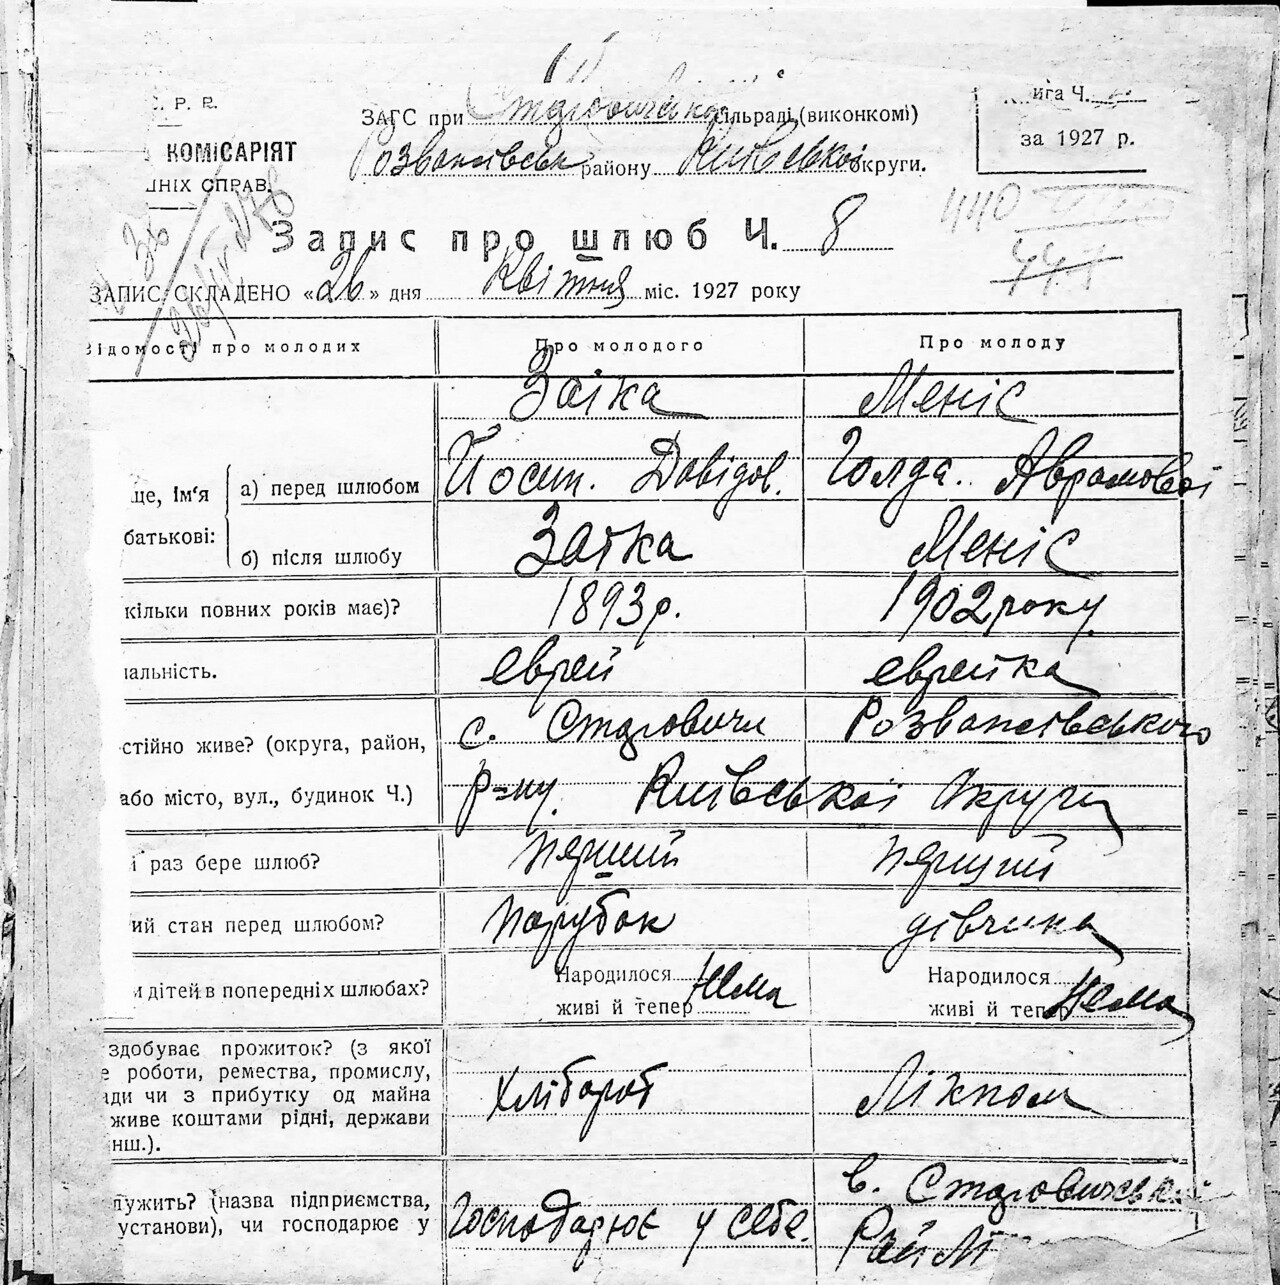 С. Р. Р.
КОМІСАРІЯТ
ШНІХ СПРАВ.
ЗАГС при Старовичській сільраді (виконкомі)
Розважівськ району Київської округи.
Книга Ч.
за 1927 р.
440
441
Запис про шлюб Ч. 8
ЗАПИС СКЛАДЕНО «26» дня Квітня міс. 1927 року
Відомості про молодих
Про молодого
Про молоду
ще, ім'я
батькові:
а) перед шлюбом
Заіка
Йосип. Давідов.
Меніс
Голда. Аврамової
б) після шлюбу
Заіка
Меніс
кільки повних років має)?
1893 р.
1902 року
нальність.
еврей
еврейка
стійно живе? (округа, район,
с. Старовичи Розважівського
або місто, вул., будинок Ч.)
р-ну. Київської Округи
й раз бере шлюб?
перший
перший
ий стан перед шлюбом?
парубок
дівчина
и дітей в попередніх шлюбах?
Народилося
живі й тепер
Нема
Народилося
живі й тепер
Нема
здобуває прожиток? (з якої
е роботи, ремества, промислу,
ади чи з прибутку од майна
живе коштами рідні, держави
нш.).
Хлібороб
Лікпом
лужить? (назва підприємства,
установи), чи господарює у
Господарює у себе.
в. Старовичські